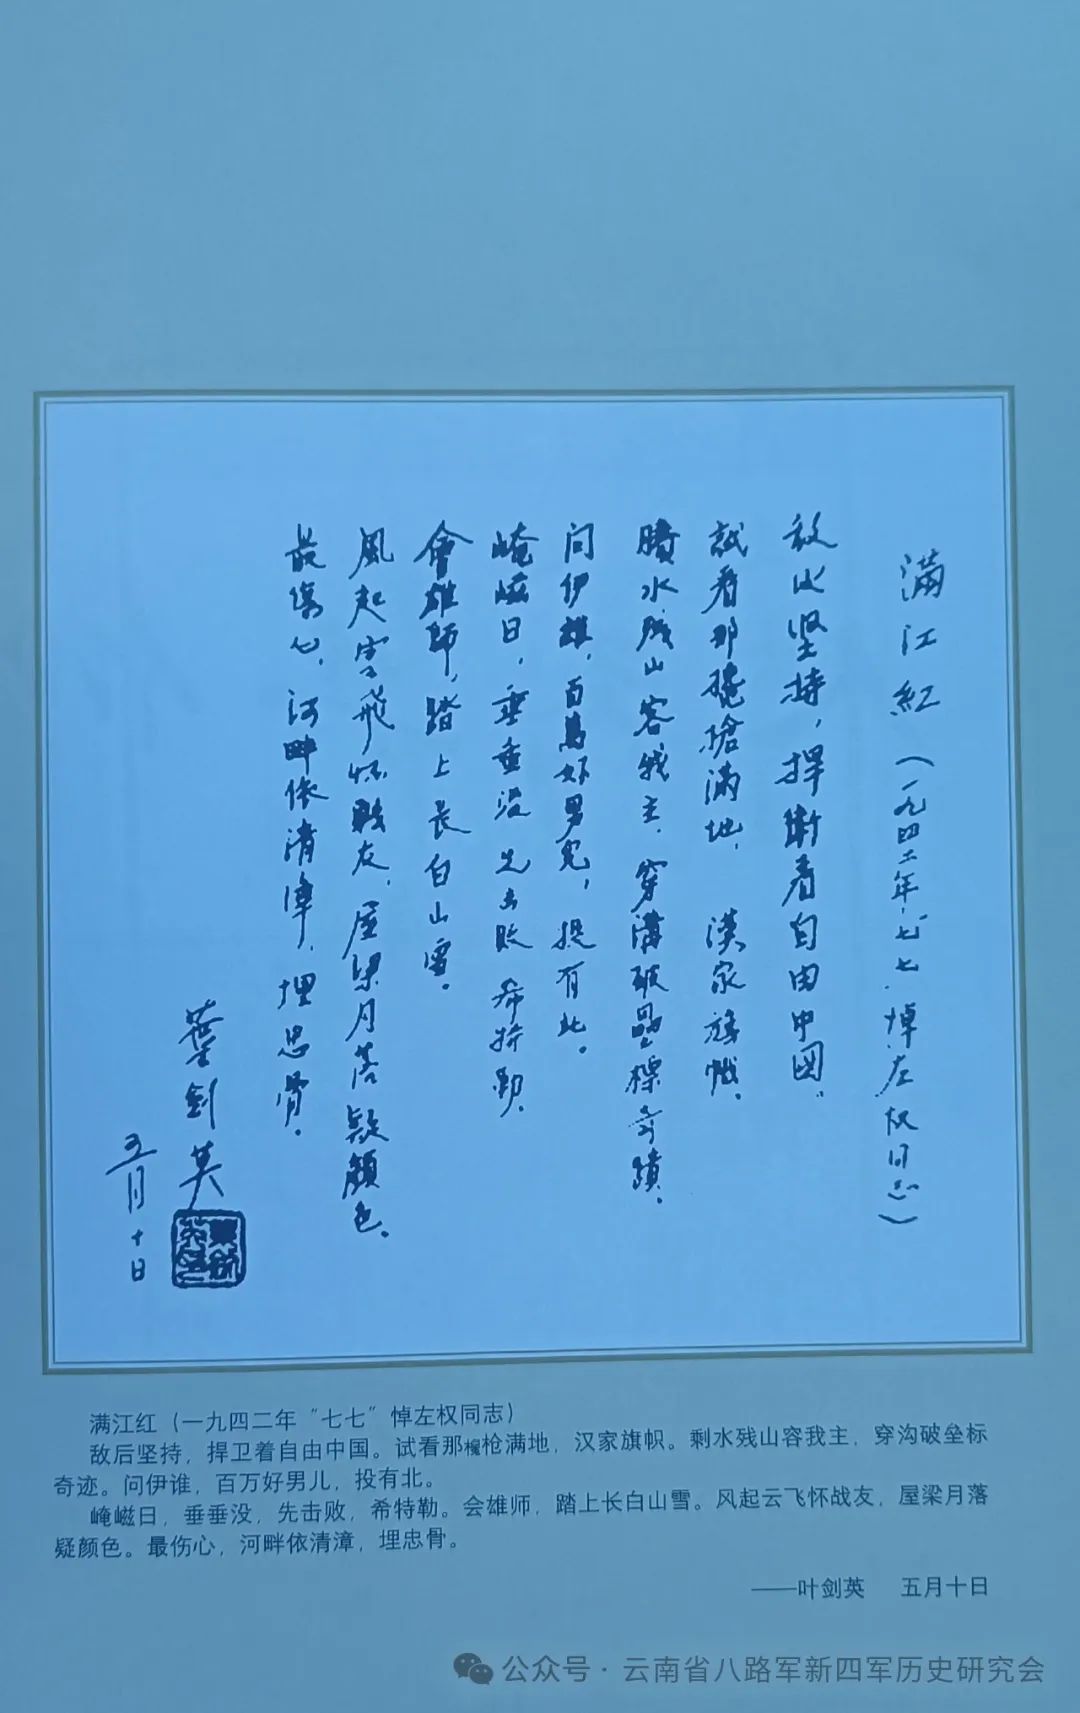 滿江紅（一九四二年，七七，悼左权同志）
敌后坚持，捍衛着自由中國。
試看那欃槍滿地，漢家旗幟。
賸水残山容我主，穿溝破壘標奇蹟。
问伊誰，百萬好男兒，投有北。
崦嵫日，垂垂没 先击敗 希特勒。
會雄師，踏上長白山雪。
風起雲飛怀戰友，屋梁月落疑顏色。
最傷心，河畔依清漳，埋忠骨。
葉劍英
五月十日
满江红（一九四二年“七七”悼左权同志）
敌后坚持，捍卫着自由中国。试看那欃枪满地，汉家旗帜。剩水残山容我主，穿沟破垒标
奇迹。问伊谁，百万好男儿，投有北。
崦嵫日，垂垂没，先击败，希特勒。会雄师，踏上长白山雪。风起云飞怀战友，屋梁月落
疑颜色。最伤心，河畔依清漳，埋忠骨。
——叶剑英 五月十日
公众号·云南省八路军新四军历史研究会